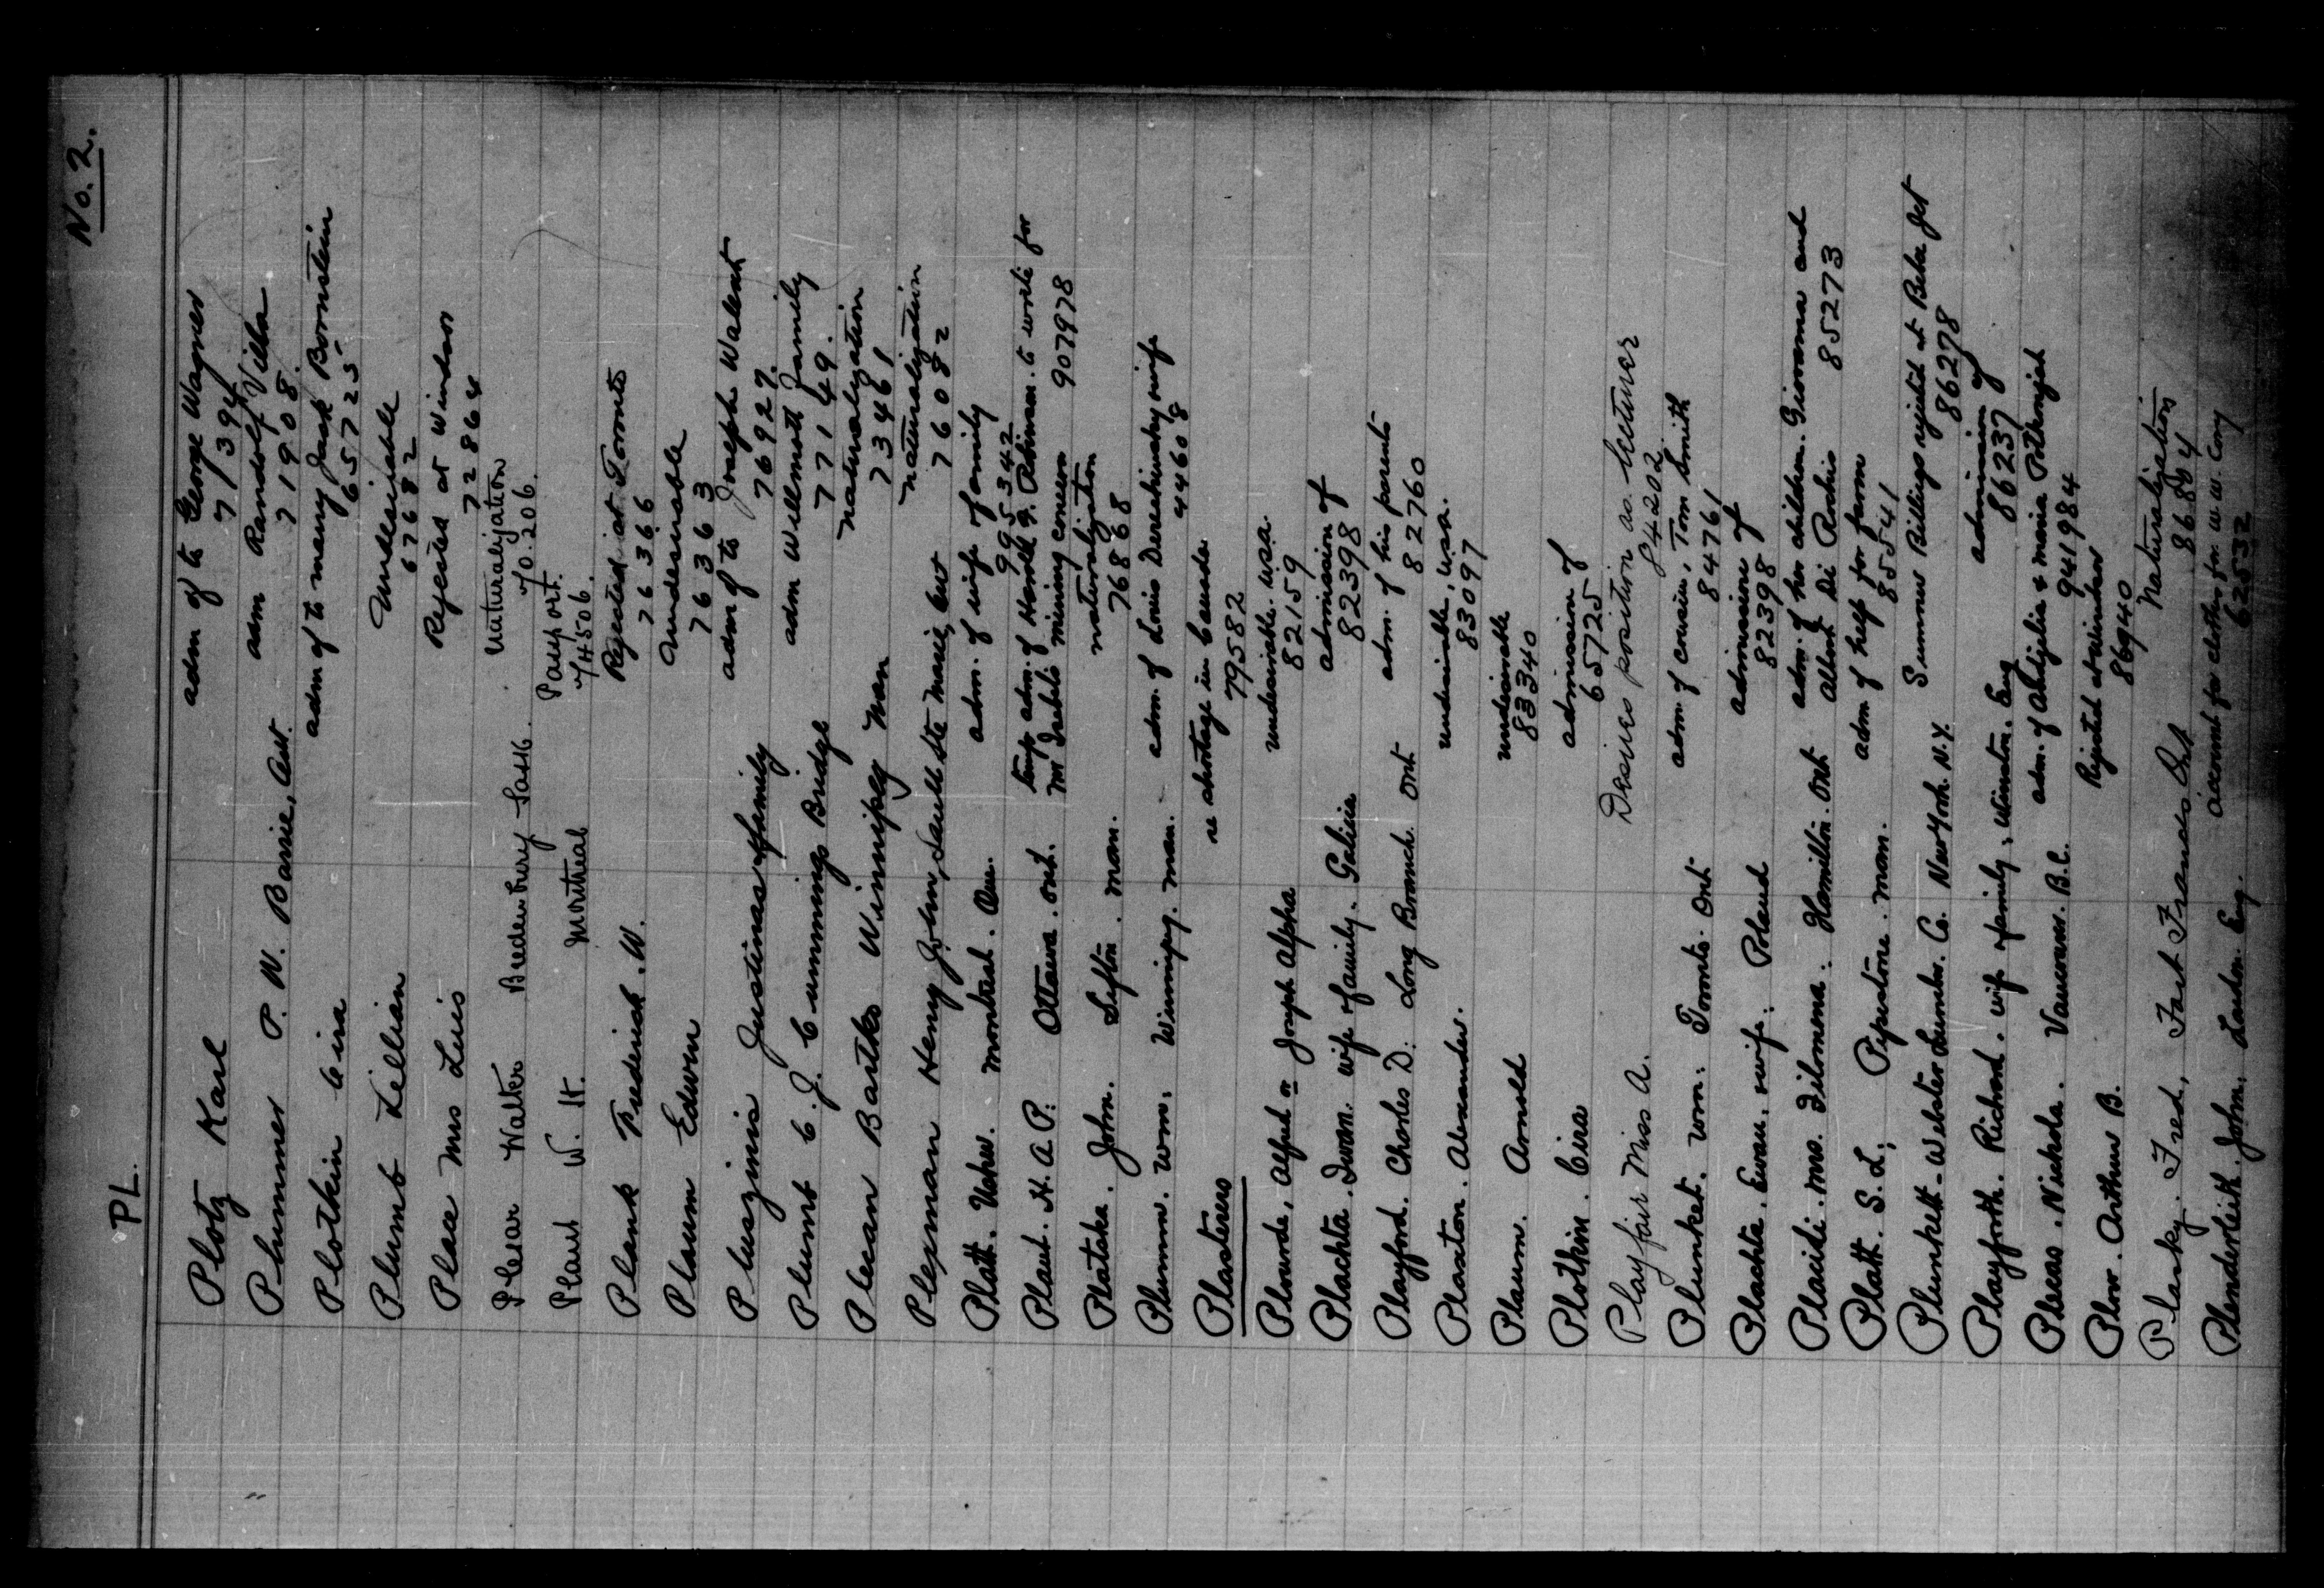 No. 2.
PL.
Plotz Karl adm of to George Wagner
71394
Plummer P. W. Barrie, Ont. adm Randolf Villa
71908.
Plotkin Cira adm of to marry Jack Bornstein
65725
Plumb Lillian Undesirable
67682
Place Mrs Luis Rejected at Windsor
72864
Plesar Walter Bredenbury Sask. Naturalization
f/o. 206.
Plant W. H. Montreal Passport.
f/4506.
Plank Frederick. W. Rejected at Toronto
76366
Plaum Edwin Undesirable
76363
Pluszinis Justinas & family adm of to Joseph Walent
76927.
Plumb C. J. Cummings Bridge adm Willmott Family
77149.
Plecan Bartko Winnipeg Man naturalization
73461
Plexman Henry John, Sault Ste Marie, Ont naturalization
76082
Platt. Usher. Montreal. Que. adm. of wife & family
995342
Plaut. H. A. P. Ottawa. Ont. temp adm. of Harold G. Robinson. to write for
mining concern 907978
Plataka. John. Sifton. Man. naturalization
76868
Plumm. Wm. Winnipeg. Man. adm. of Louis wife
44608
Plasterers re shortage in Canada
79582
Plourde, Alfred or Joseph Alpha undesirable. USA.
82159
Plachta. Iwan. wife & family. Galicia admission of
82398
Playford. Charles D. Long Branch Ont adm. of his parents
82760
Plaxton. Alexander. undesirable, USA.
83097
Plaum. Arnold undesirable
83340
Plotkin. Cira admission of
65725
Playfair Miss A. Desires position as lecturer
84202
Plunket. Wm. Toronto. Ont adm. of cousin, Tom Smith
84761
Plachta. Ewan. & wife. Poland admission of
82398
Placidi. Mrs. Filomena. Hamilton. Ont adm. of her children. Giovanna and
Albert Di Rochis 85273
Platt. S. L. Pipestone. Man. adm of help for farm
85541
Plunkett-Webster Lumber. Co. New York. N.Y. Sumner Billings rejected at Beebe Jct
86278
Playforth. Richard. wife & family, Winston. Eng admission of
86237
Plecas. Nichola. Vancouver. B.C. adm. of & Maria
941984
Plow. Arthur B. Rejected at Windsor
86940
Plasky. Fred, Fort Frances Ont Naturalization
86894
Plenderleith. John. London. Eng. account for clothes for W. W. Cory
62532